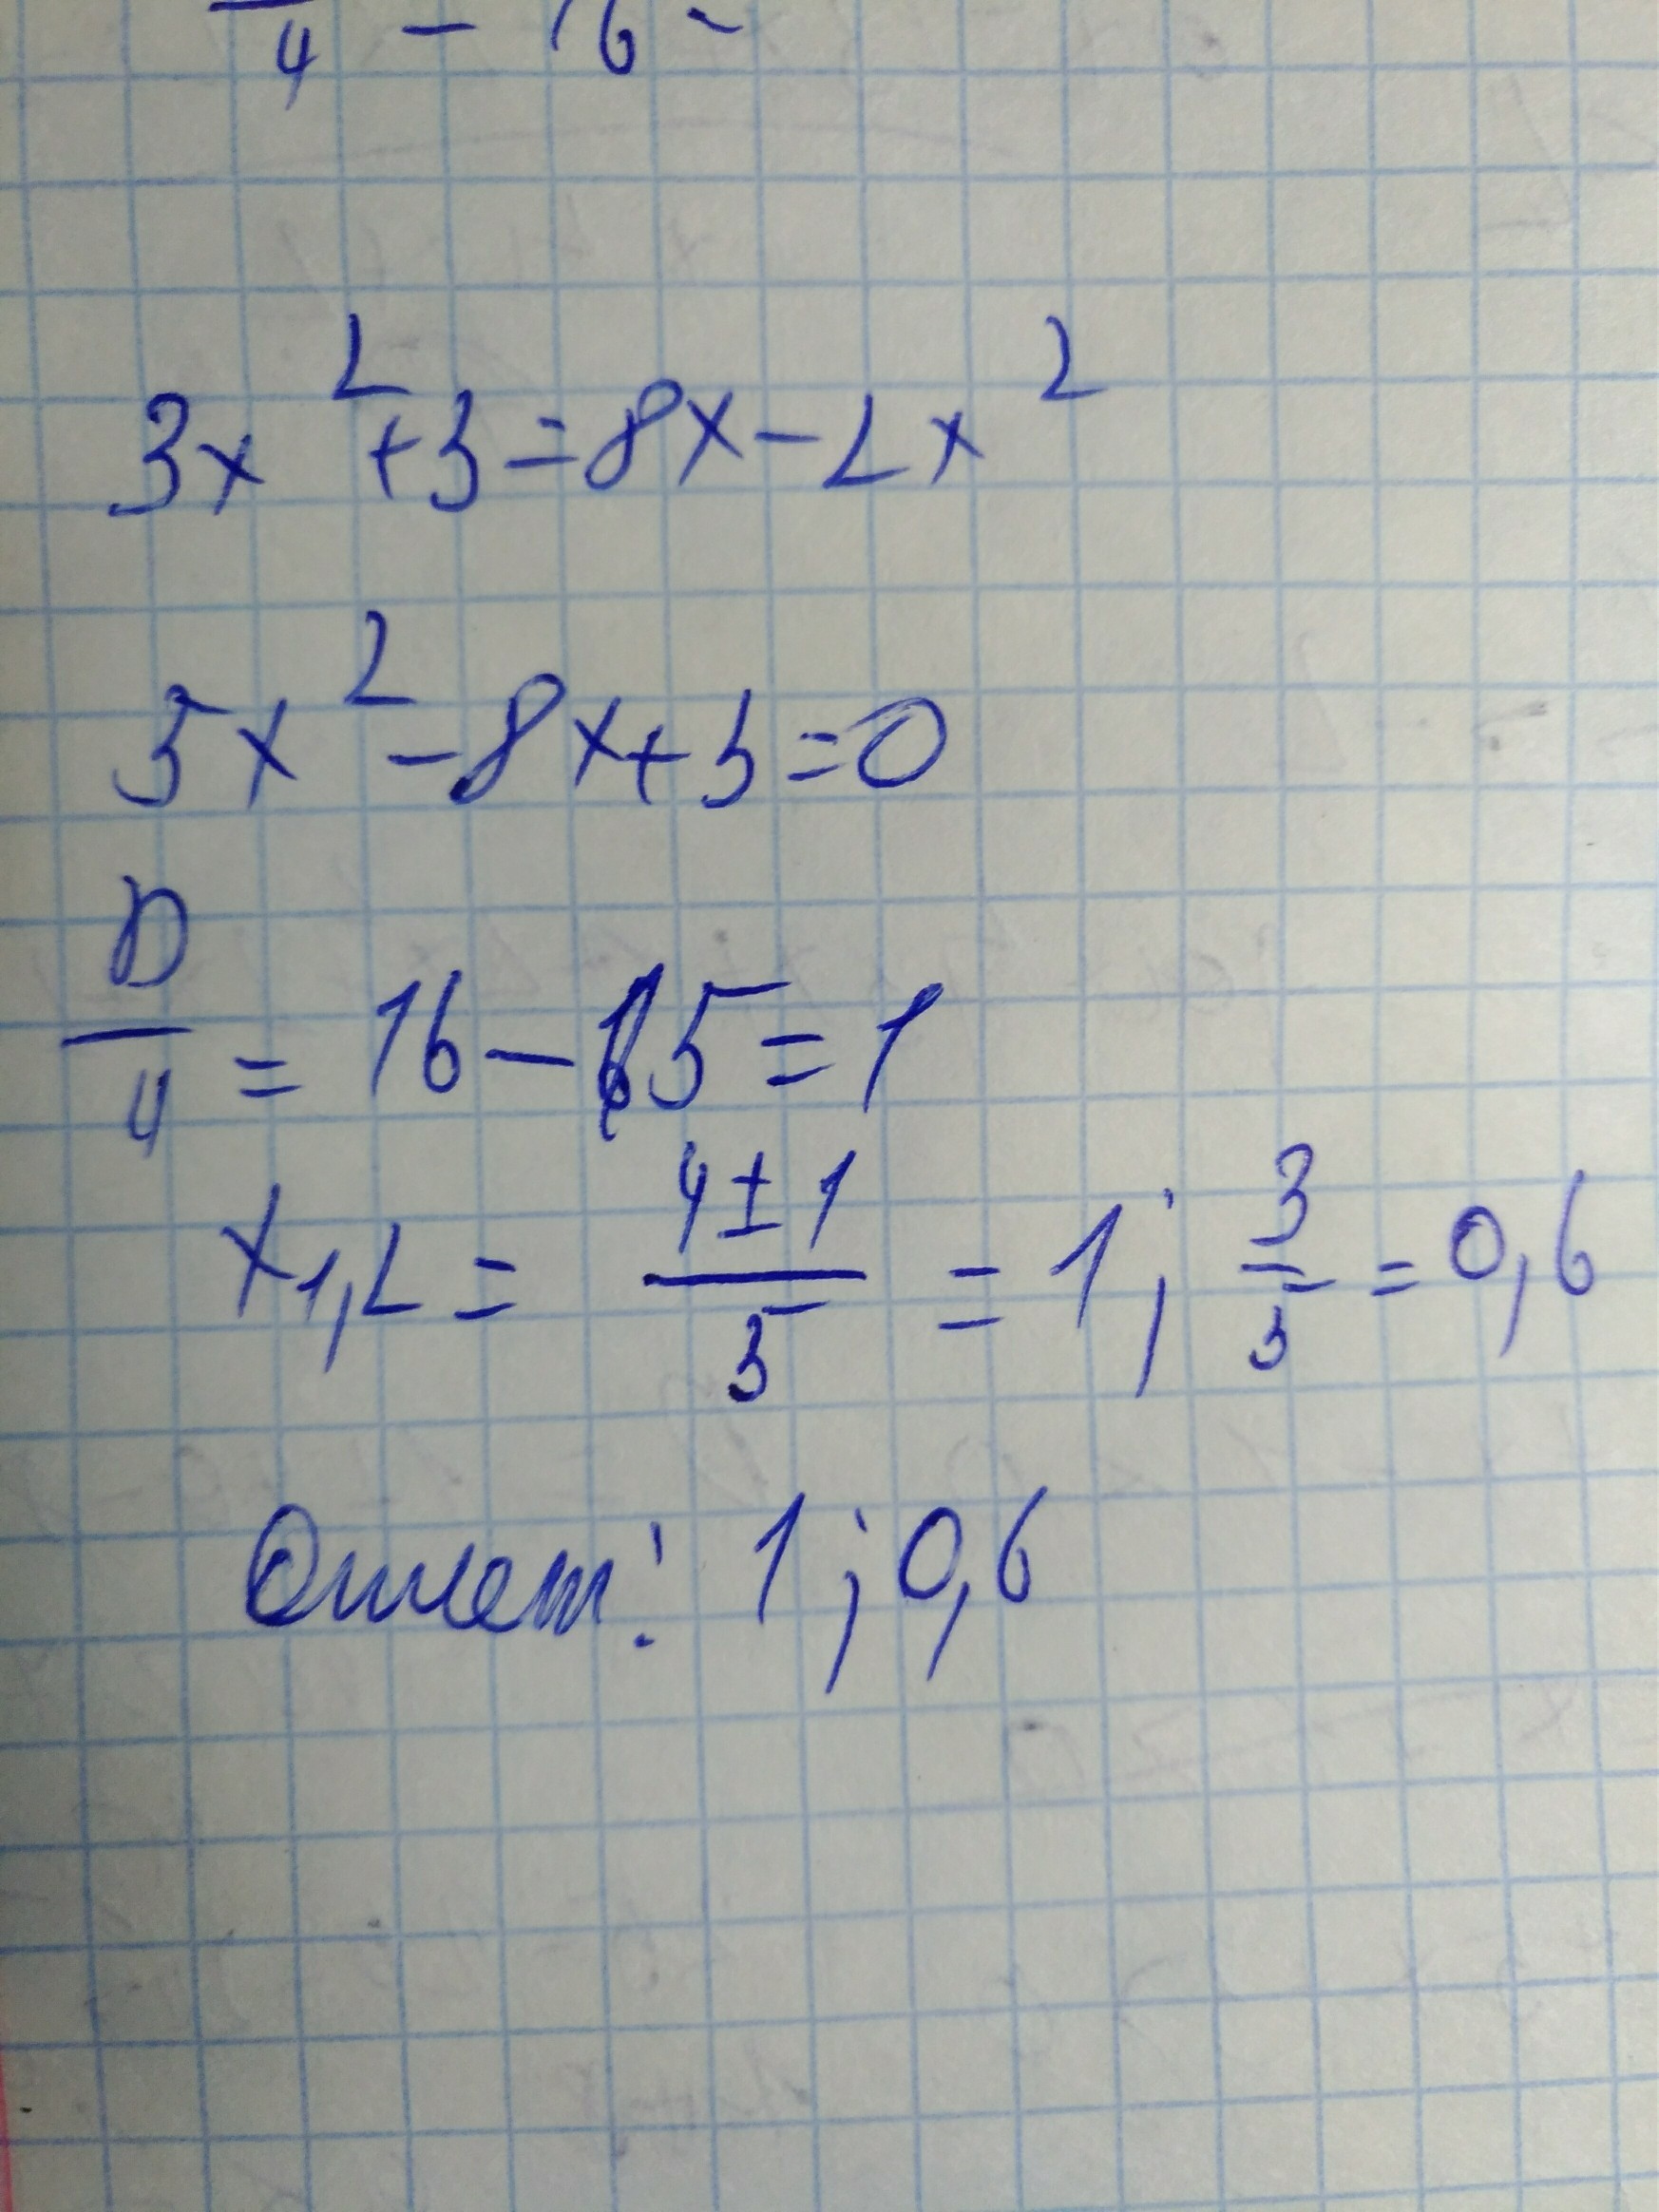 4 - 16 -
3x² + 3 = 8x - 2x²
5x² - 8x + 3 = 0
D/4 = 16 - 15 = 1
x₁,₂ = (4 ± 1)/5 = 1; 3/5 = 0,6
Ответ: 1; 0,6